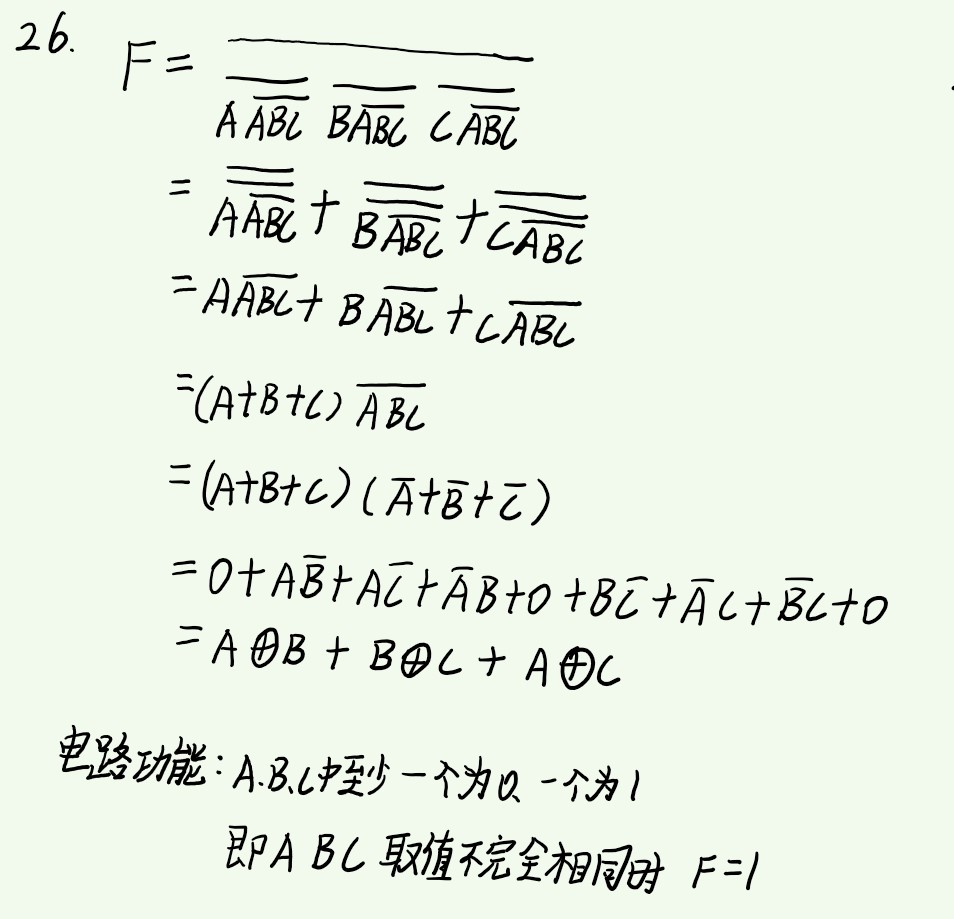 26. F = \overline{\overline{A\overline{ABC}}\ \overline{B\overline{ABC}}\ \overline{C\overline{ABC}}}
= \overline{\overline{A\overline{ABC}}} + \overline{\overline{B\overline{ABC}}} + \overline{\overline{C\overline{ABC}}}
= A\overline{ABC} + B\overline{ABC} + C\overline{ABC}
= (A+B+C) \overline{ABC}
= (A+B+C) (\overline{A}+\overline{B}+\overline{C})
= 0 + A\overline{B} + A\overline{C} + \overline{A}B + 0 + B\overline{C} + \overline{A}C + \overline{B}C + 0
= A⊕B + B⊕C + A⊕C
电路功能: A.B.C中至少一个为0、一个为1
即A B C 取值不完全相同时 F=1